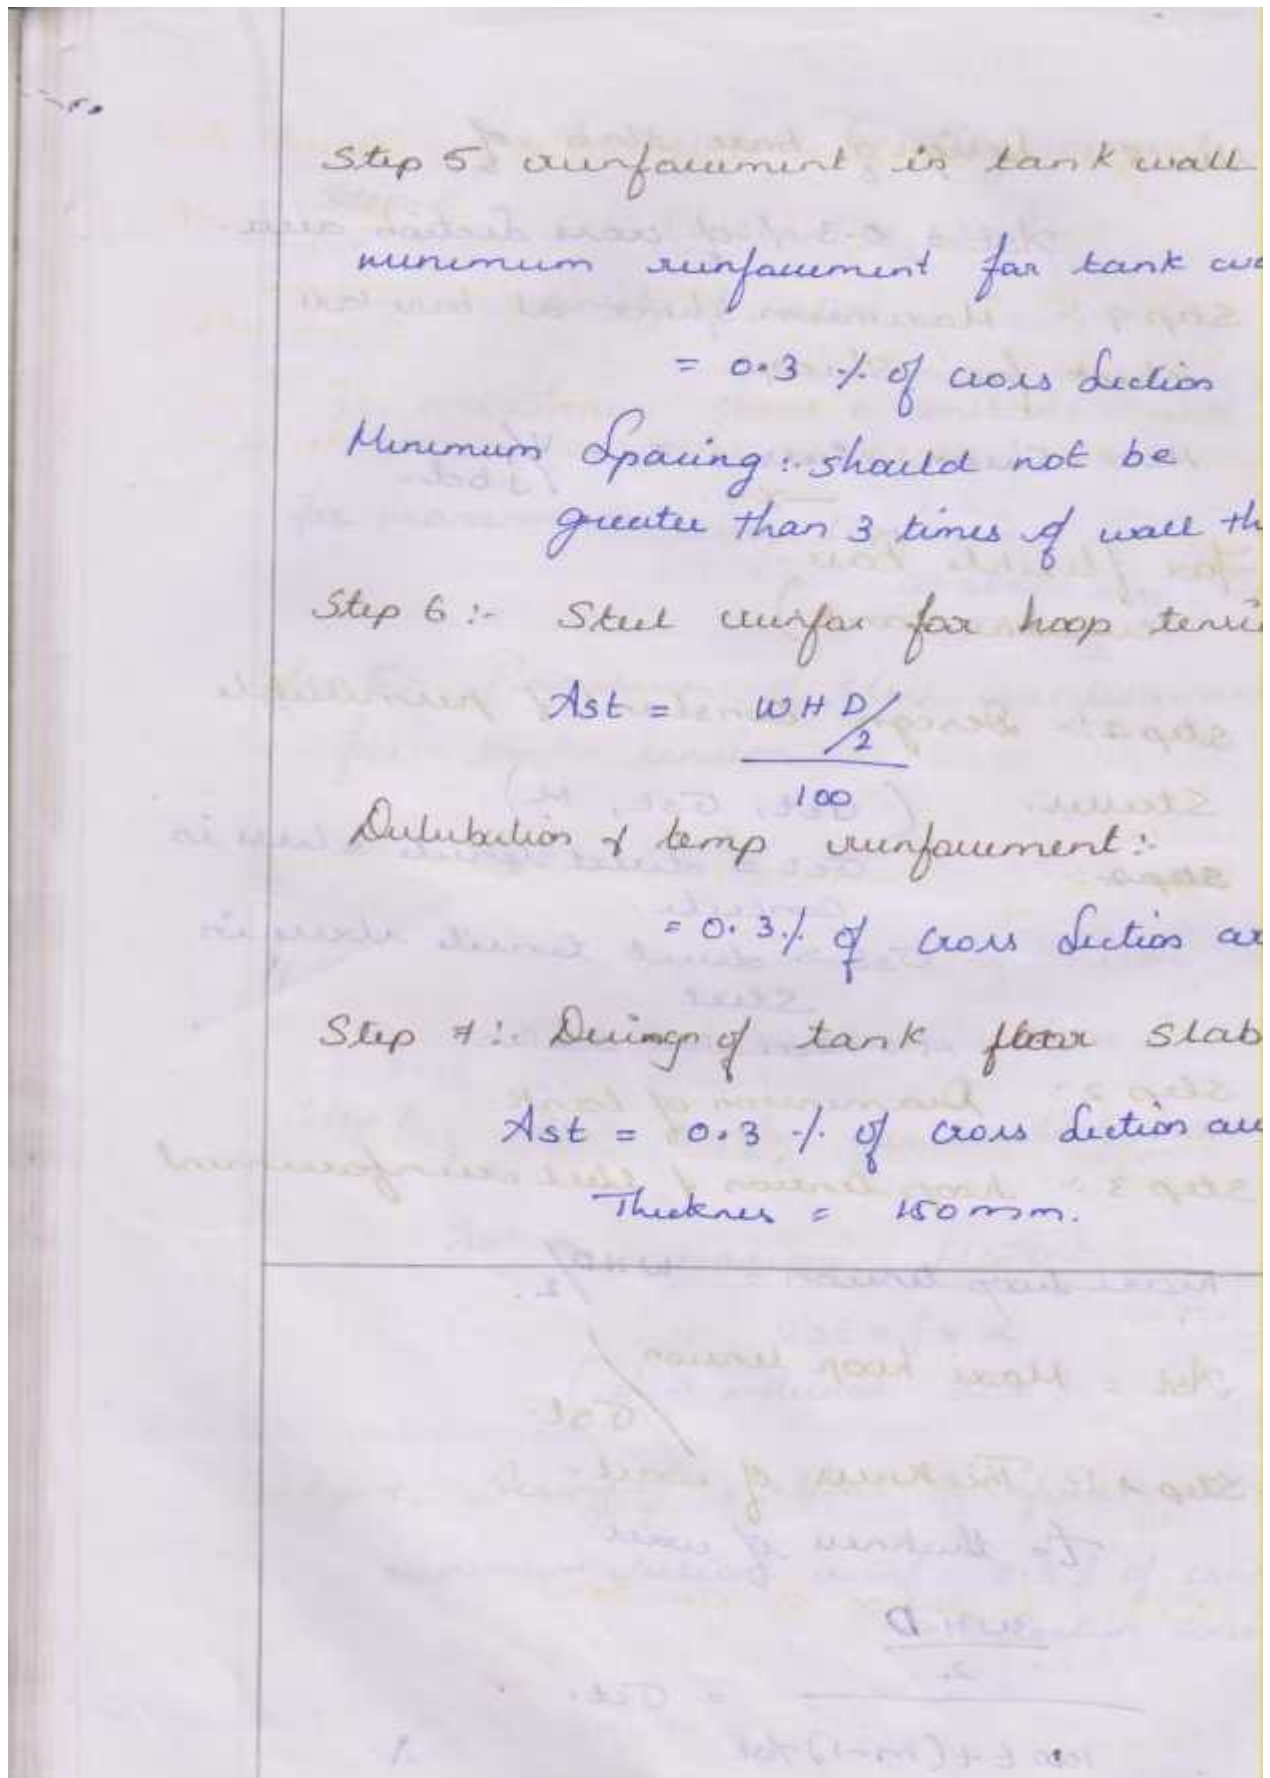 Step 5 reinforcement in tank wall
minimum reinforcement for tank wa
= 0.3 % of cross section
Minimum Spacing :- should not be
greater than 3 times of wall th
Step 6 :- Steel reinfor for hoop tensi
Ast = WHD/2
100
Distribution & temp reinforcement :-
= 0.3 % of cross section ar
Step 7 :- Design of tank floor Slab
Ast = 0.3 % of cross section are
Thickness = 150 mm.